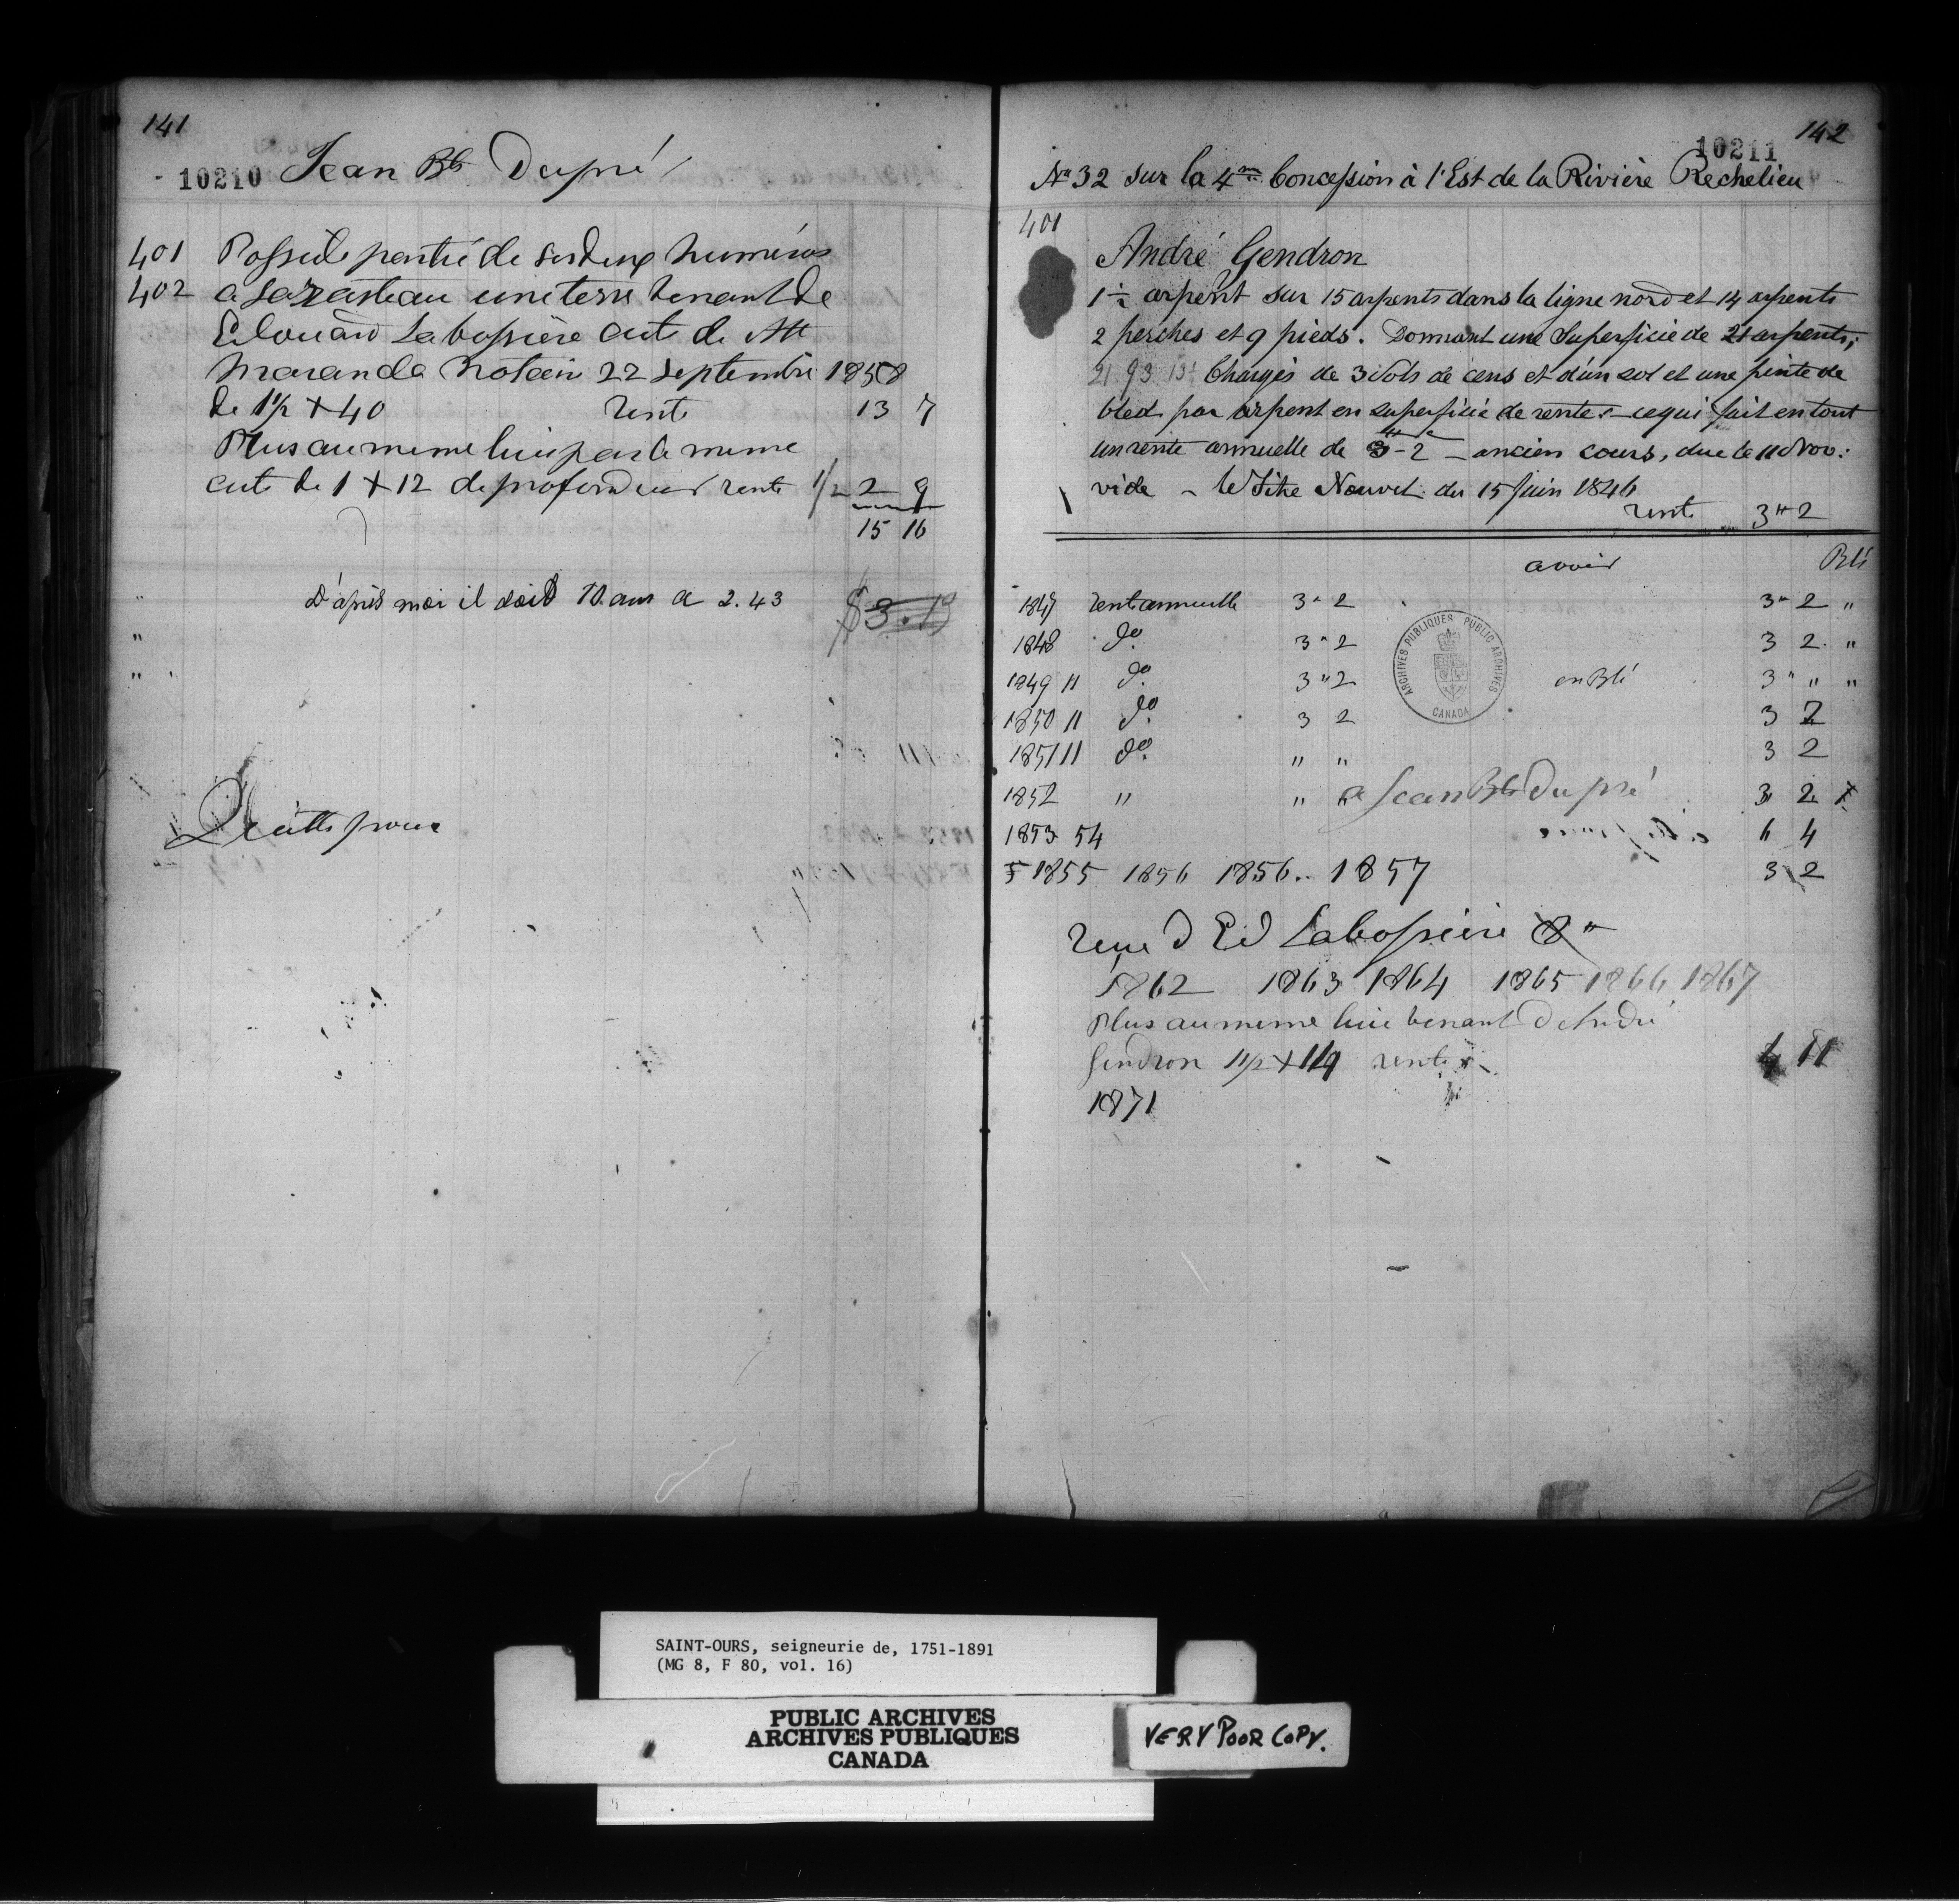 141
10210 Jean Bte Dupré
401 Possède partie de ses deux numéros
402 a Sarasteau une terre tenant de
Edouard Labossière acte de Mtt
Maranda Notaire 22 Septembre 1858
de 1½ + 40 rente 13 7
Plus au meme lieu par le meme
acte de 1 + 12 de profondeur rente 1/2 2 9
15 16
D'après moi il doit 10 ans a 2.43
Quitte pour
142
10211
No 32 sur la 4me Concession à l'Est de la Rivière Rechelieu
401
André Gendron
1 ½ arpent sur 15 arpents dans la ligne nord et 14 arpents
2 perches et 9 pieds. Donnant une Superficie de 21 arpents,
21 93 13½ Chargés de 3 Sols de cens et d'un sol et une pinte de
bled par arpent en superficie de rente :- ce qui fait en tout
un rente annuelle de 3-2 - ancien cours, due le 11 Nov:
vide - le Titre Nouvel du 15 Juin 1846
rente 3 " 2
avoir Blé
1847 rente annuelle 3 " 2 3 " 2 "
1848 do. 3 " 2 3 2 "
1849 11 do. 3 " 2 en Blé 3 " " "
1850 11 do. 3 2 3 2
1851 11 do. " " 3 2
1852 " " a Jean Bte Dupré 3 2
1853 54 6 4
1855 1856 1856.. 1857 3 2
Venu d Ed Labossière
1862 1863 1864 1865 1866 1867
Plus au meme lieu tenant d André
Gendron 1 1/2 + 14 rente 4 11
1871
ARCHIVES PUBLIQUES PUBLIC ARCHIVES
CANADA
SAINT-OURS, seigneurie de, 1751-1891
(MG 8, F 80, vol. 16)
PUBLIC ARCHIVES
ARCHIVES PUBLIQUES
CANADA
VERY POOR COPY.